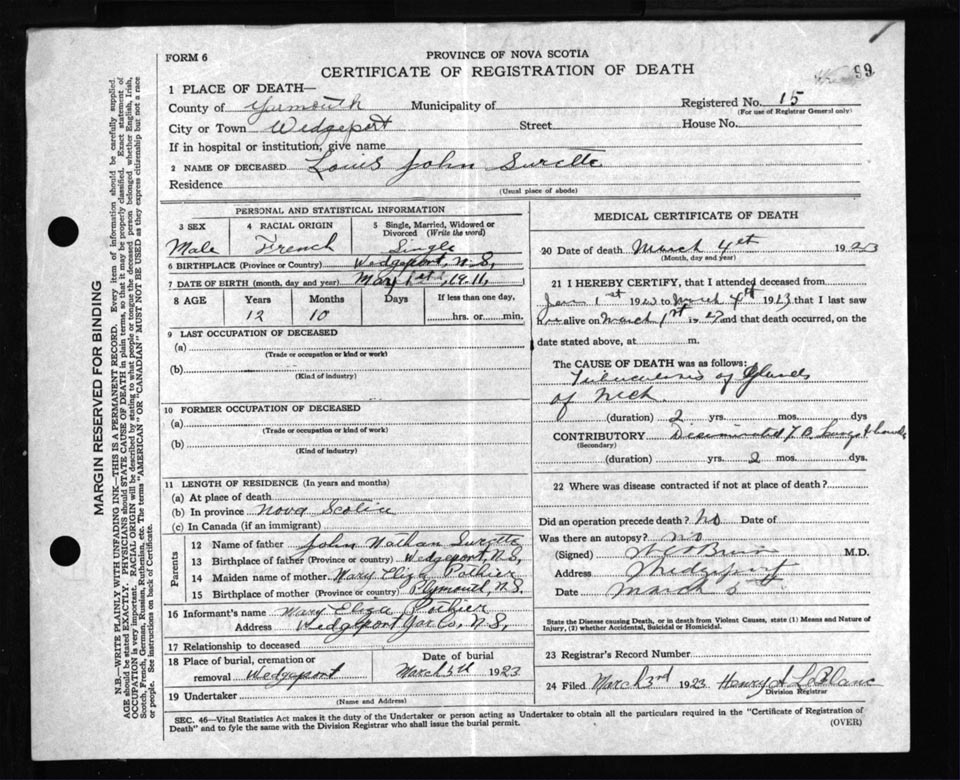 FORM 6
PROVINCE OF NOVA SCOTIA
CERTIFICATE OF REGISTRATION OF DEATH
99
1 PLACE OF DEATH—
County of Yarmouth Municipality of Registered No. 15
(For use of Registrar General only)
City or Town Wedgeport Street House No.
If in hospital or institution, give name
2 NAME OF DECEASED Louis John Surette
Residence
(Usual place of abode)
PERSONAL AND STATISTICAL INFORMATION
3 SEX
Male
4 RACIAL ORIGIN
French
5 Single, Married, Widowed or
Divorced (Write the word)
Single
6 BIRTHPLACE (Province or Country) Wedgeport, N.S,
7 DATE OF BIRTH (month, day and year) May 1st, 1911,
8 AGE Years Months Days If less than one day,
12 10 hrs. or min.
9 LAST OCCUPATION OF DECEASED
(a)
(Trade or occupation or kind or work)
(b)
(Kind of industry)
10 FORMER OCCUPATION OF DECEASED
(a)
(Trade or occupation or kind or work)
(b)
(Kind of industry)
11 LENGTH OF RESIDENCE (In years and months)
(a) At place of death
(b) In province Nova Scotia
(c) In Canada (if an immigrant)
Parents
12 Name of father John Nathan Surette
13 Birthplace of father (Province or country) Wedgeport, N.S,
14 Maiden name of mother Mary Eliza Pothier
15 Birthplace of mother (Province or country) Plymouth, N.S.
16 Informant's name Mary Eliza Pothier
Address Wedgeport Yar. Co, N.S,
17 Relationship to deceased
18 Place of burial, cremation or
removal Wedgeport
Date of burial
March 5th 1923
19 Undertaker
(Name and Address)
MEDICAL CERTIFICATE OF DEATH
20 Date of death March 4th 1923
(Month, day and year)
21 I HEREBY CERTIFY, that I attended deceased from
Jan 1st 1923 to March 4th 1923 that I last saw
alive on March 1st 1923 and that death occurred, on the
date stated above, at m.
The CAUSE OF DEATH was as follows:
Tuberculosis of Glands
of Neck
(duration) 2 yrs. mos. dys
CONTRIBUTORY Disseminated T.B. Lungs &
(Secondary)
(duration) yrs. 2 mos. dys.
22 Where was disease contracted if not at place of death?
Did an operation precede death? No Date of
Was there an autopsy? no
(Signed) M.D.
Address Wedgeport
Date March 5
State the Disease causing Death, or in death from Violent Causes, state (1) Means and Nature of
Injury, (2) whether Accidental, Suicidal or Homicidal.
23 Registrar's Record Number
24 Filed March 3rd 1923 Henry A LeBlanc
Division Registrar
SEC. 46—Vital Statistics Act makes it the duty of the Undertaker or person acting as Undertaker to obtain all the particulars required in the "Certificate of Registration of
Death" and to fyle the same with the Division Registrar who shall issue the burial permit.
(OVER)
MARGIN RESERVED FOR BINDING
N.B—WRITE PLAINLY WITH UNFADING INK—THIS IS A PERMANENT RECORD. Every item of information should be carefully supplied.
AGE should be stated EXACTLY. PHYSICIANS should STATE CAUSE OF DEATH in plain terms, so that it may be properly classified. Exact statement of
OCCUPATION is very important. RACIAL ORIGIN will be described by stating to what people or tongue the deceased person belonged whether English, Irish,
Scotch, French, German, Russian, Ruthenian, etc. The terms "AMERICAN" OR "CANADIAN" MUST NOT BE USED as they express citizenship but not a race
or people. See instructions on back of Certificate.